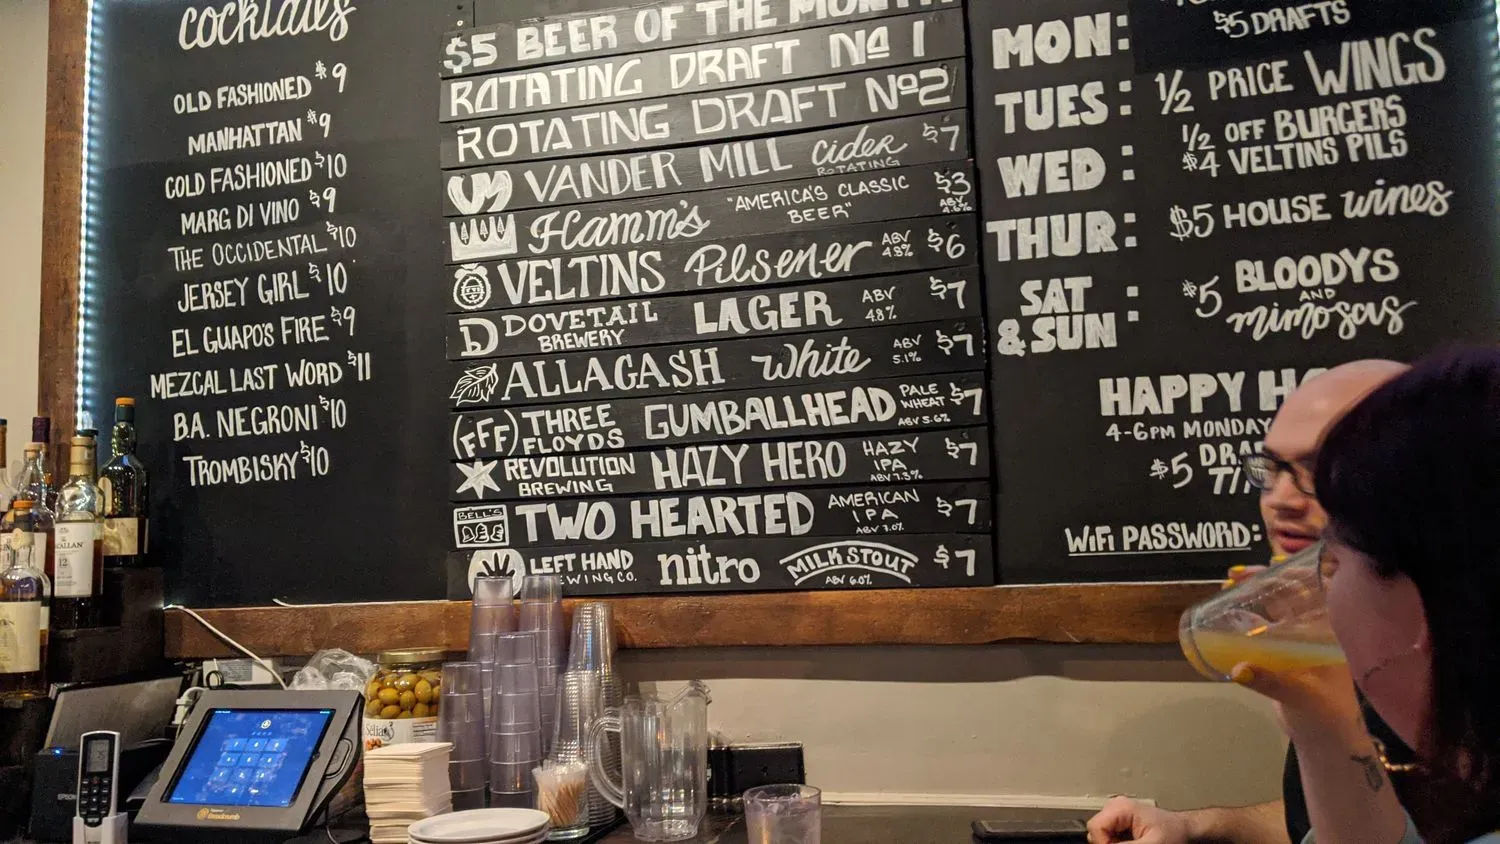 cocktails
OLD FASHIONED $9
MANHATTAN $9
COLD FASHIONED $10
MARG DI VINO $9
THE OCCIDENTAL $10
JERSEY GIRL $10
EL GUAPO'S FIRE $9
MEZCAL LAST WORD $11
B.A. NEGRONI $10
TROMBISKY $10
$5 BEER OF THE MONTH
ROTATING DRAFT No 1
ROTATING DRAFT No2
VANDER MILL Cider ROTATING $7
Hamm's "AMERICA'S CLASSIC BEER" $3 ABV 4.6%
VELTINS Pilsener ABV 4.8% $6
D DOVETAIL BREWERY LAGER ABV 4.8% $7
ALLAGASH White ABV 5.1% $7
(FFF) THREE FLOYDS GUMBALLHEAD PALE WHEAT ABV 5.6% $7
REVOLUTION BREWING HAZY HERO HAZY IPA ABV 7.3% $7
BELL'S TWO HEARTED AMERICAN IPA ABV 7.0% $7
LEFT HAND EWING CO. nitro MILK STOUT ABV 6.0% $7
$5 DRAFTS
MON:
TUES: 1/2 PRICE WINGS
WED: 1/2 OFF BURGERS
$4 VELTINS PILS
THUR: $5 HOUSE wines
SAT & SUN: $5 BLOODYS AND mimosas
HAPPY
4-6PM MONDAY
$5
WiFi PASSWORD:
12